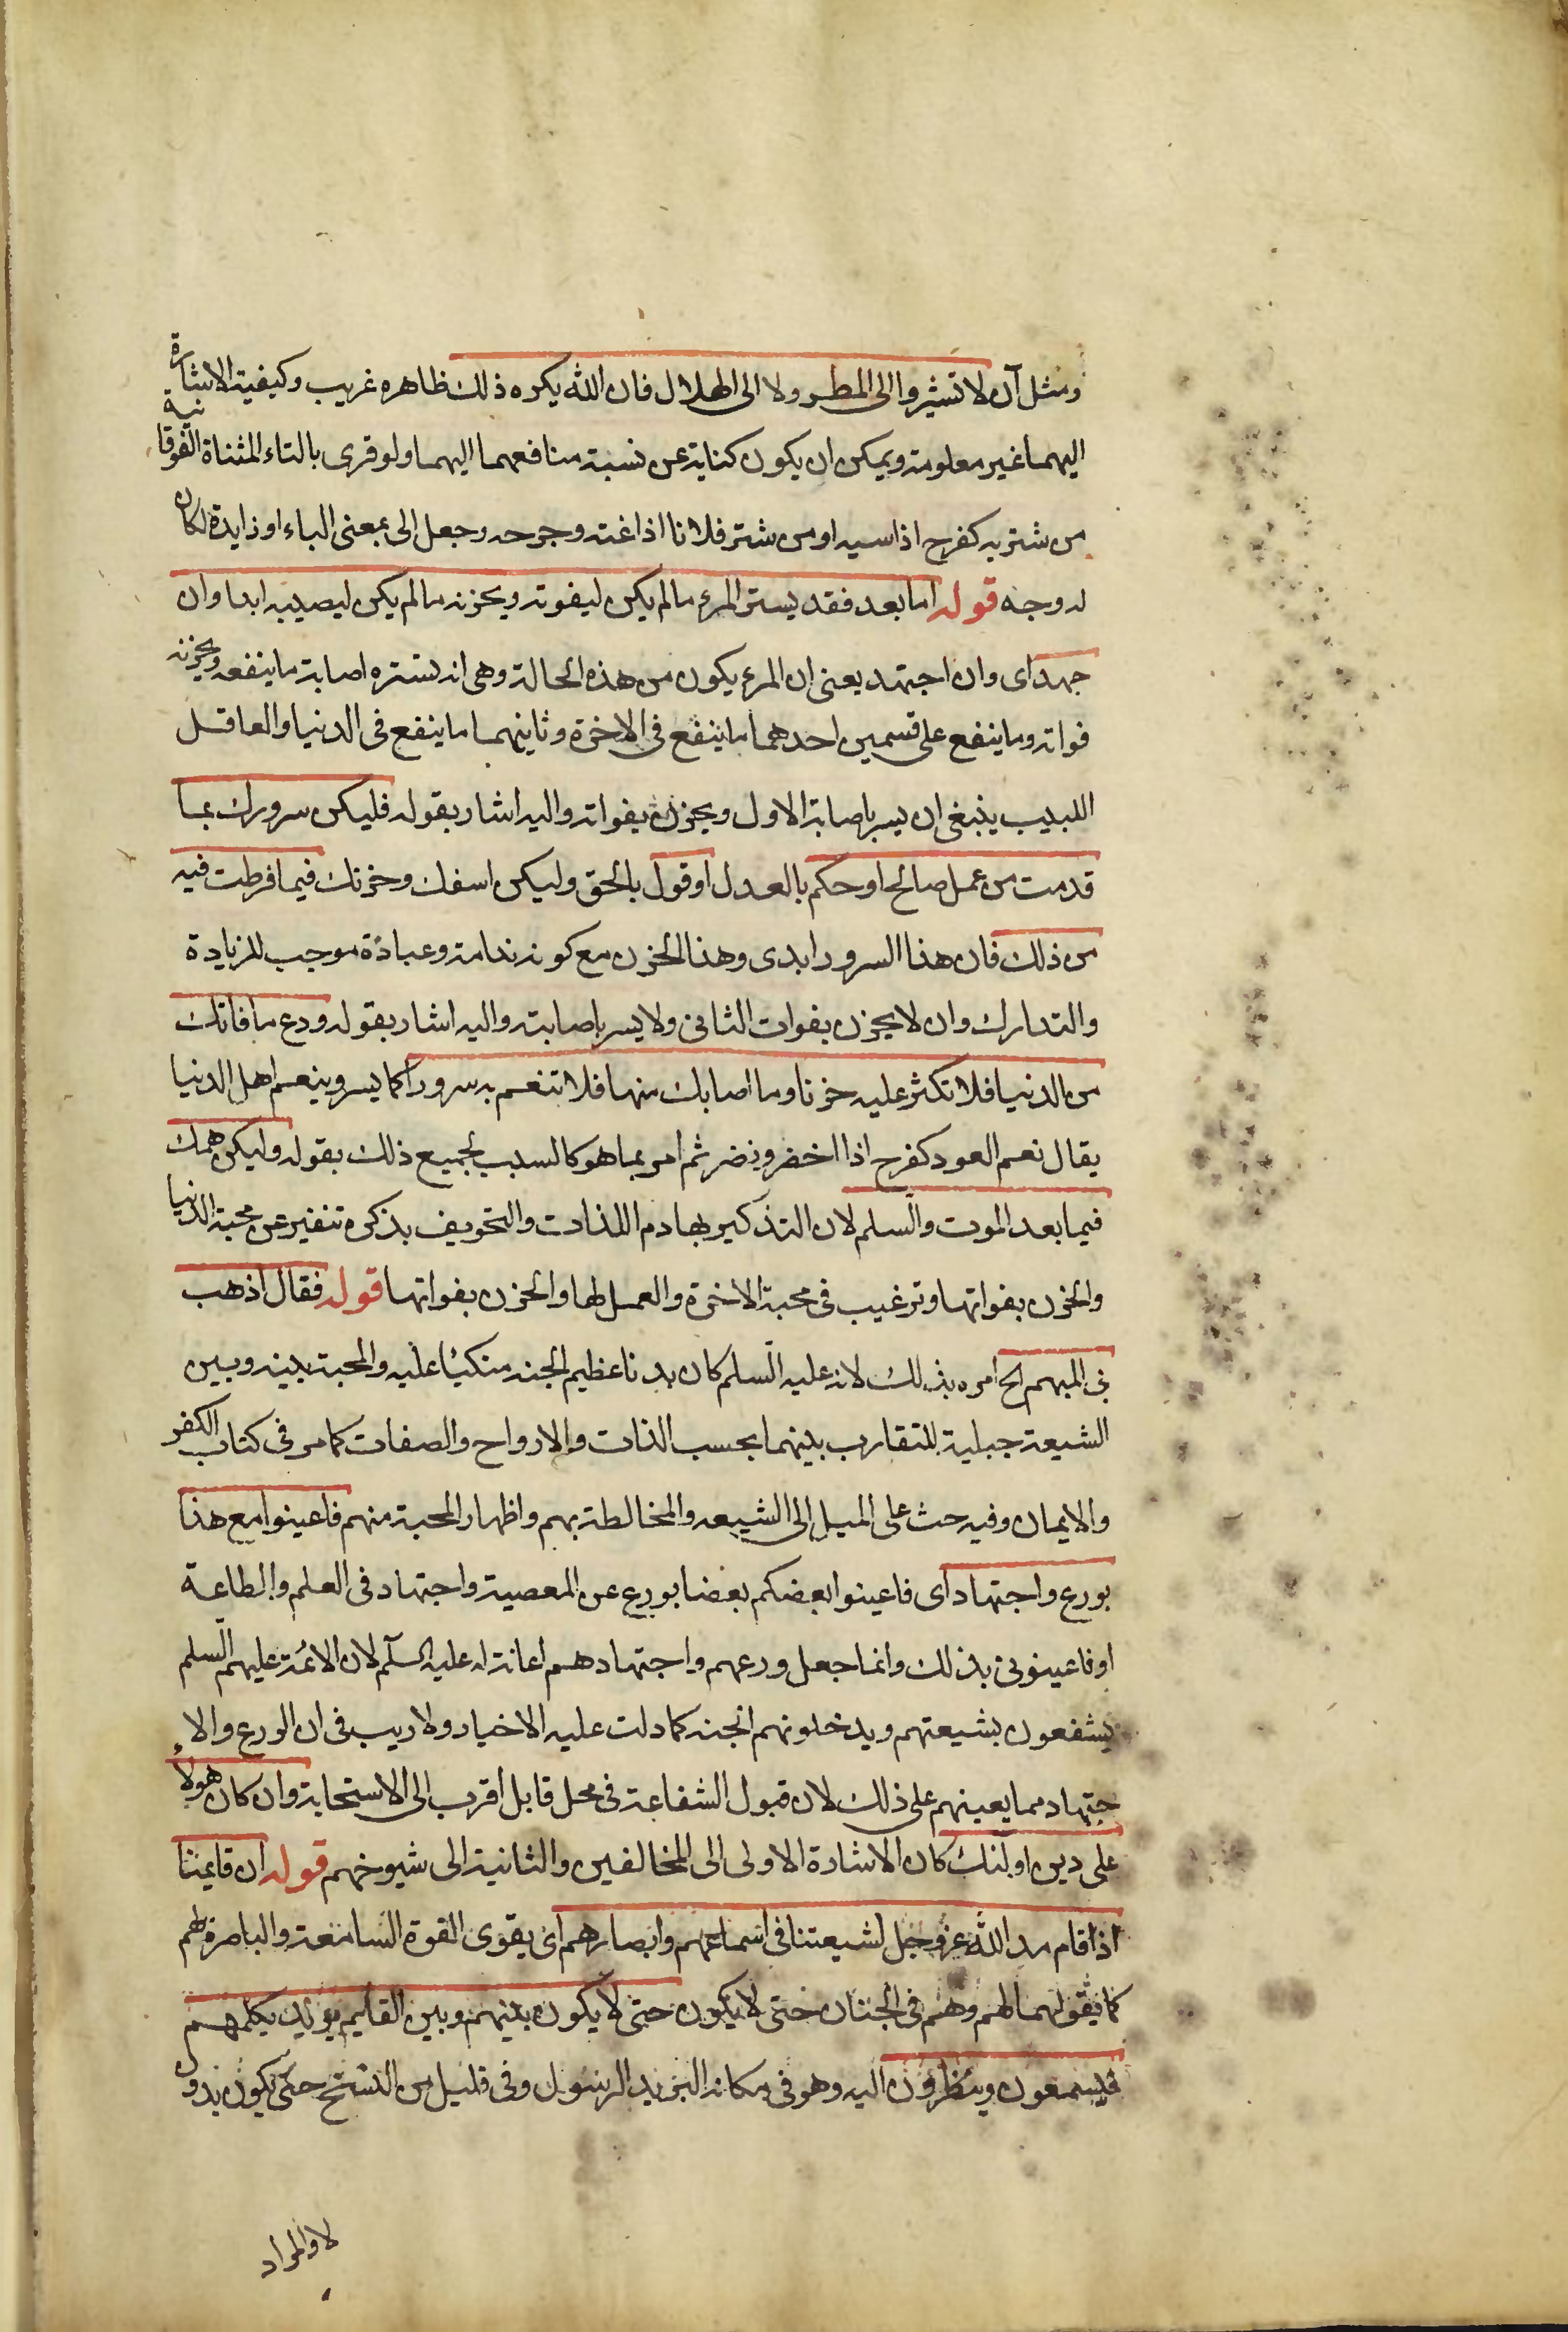 ومثل آن لا تشيروا الى المطر ولا الى الهلال فان الله يكره ذلك ظاهره غريب وكيفية الاشارة
اليهما غير معلومة ويمكن ان يكون كناية عن نسبة منافعهما اليهما ولو قرى بالتاء المثناة الفوقانية
من شتر به كفرح اذا سبه او من شتر فلانا اذا غته وجرحه وجعل الى بمعنى الباء او زايدة لكان
له وجه قوله اما بعد فقد يستر المرء ما لم يكن ليفوته ويحزنه ما لم يكن ليصيبه ابدا وان
جهد اى وان اجتهد يعنى ان المرء يكون من هذه الحالة وهى انه تستره اصابة ما ينفعه ويحزنه
فواته وما ينفع على قسمين احدهما ما ينفع فى الاخرة وثاينهما ما ينفع فى الدنيا والعاقل
اللبيب ينبغى ان يسر باصابة الاول ويحزن بفواته واليه اشار بقوله فليكن سرورك بما
قدمت من عمل صالح او حكم بالعدل او قول بالحق وليكن اسفك وحزنك فيما فرطت فيه
من ذلك فان هذا السرور ابدى وهذا الحزن مع كونه ندامة وعبادة موجب للزيادة
والتدارك وان لا يحزن بفوات الثانى ولا يسر باصابته واليه اشار بقوله ودع ما فاتك
من الدنيا فلا تكثر عليه حزنا وما اصابك منها فلا تنعم به سرورا كما يسر وينعم اهل الدنيا
يقال نعم العود كفرح اذا اخضر ونضر ثم امر بما هو كالسبب لجميع ذلك بقوله وليكن همك
فيما بعد الموت والسلم لان التذكير بهادم اللذات والتخويف بذكره تنفير عن محبة الدنيا
والحزن بفواتها وترغيب فى محبة الاخرة والعمل لها والحزن بفواتها قوله فقال اذهب
بى المبهم الخ امره بذلك لانه عليه السلم كان بدنا عظيم الجنه متكيئا عليه والمحبة بينه وبين
الشيعة جبلية للتقارب بينهما بحسب الذات والارواح والصفات كما مر فى كتاب الكفر
والايمان وفيه حث على الميل الى الشيعه والمخالطة بهم واظهار المحبة منهم فاعينوا مع هذا
بورع واجتهاد اى فاعينوا بعضكم بعضا بورع عن المعصية واجتهاد فى العلم والطاعة
او فاعينونى بذلك وانما جعل ورعهم واجتهادهم اعانة له عليه السلم لان الائمة عليهم السلم
يشفعون بشيعتهم ويدخلونهم الجنه كما دلت عليه الاخبار ولا ريب فى ان الورع والا
جتهاد مما يعينهم على ذلك لان قبول الشفاعة فى محل قابل اقرب الى الاستجابة وان كان هولاء
على دين اولئك كان الاشارة الاولى الى المخالفين والثانية الى شيوخهم قوله ان قايمنا
اذا قام مد الله عز وجل لشيعتنا فى اسماعهم وابصارهم اى يقوى القوة السامعة والباصرة لهم
كما يقولهما لهم وهم فى الجنان حتى لا يكون حتى لا يكون بينهم وبين القايم بريد يكلمهم
فيسمعون وينظرون اليه وهو فى مكانه البريد الرسول وفى قليل من النسخ حتى يكون بدون
لا والمراد